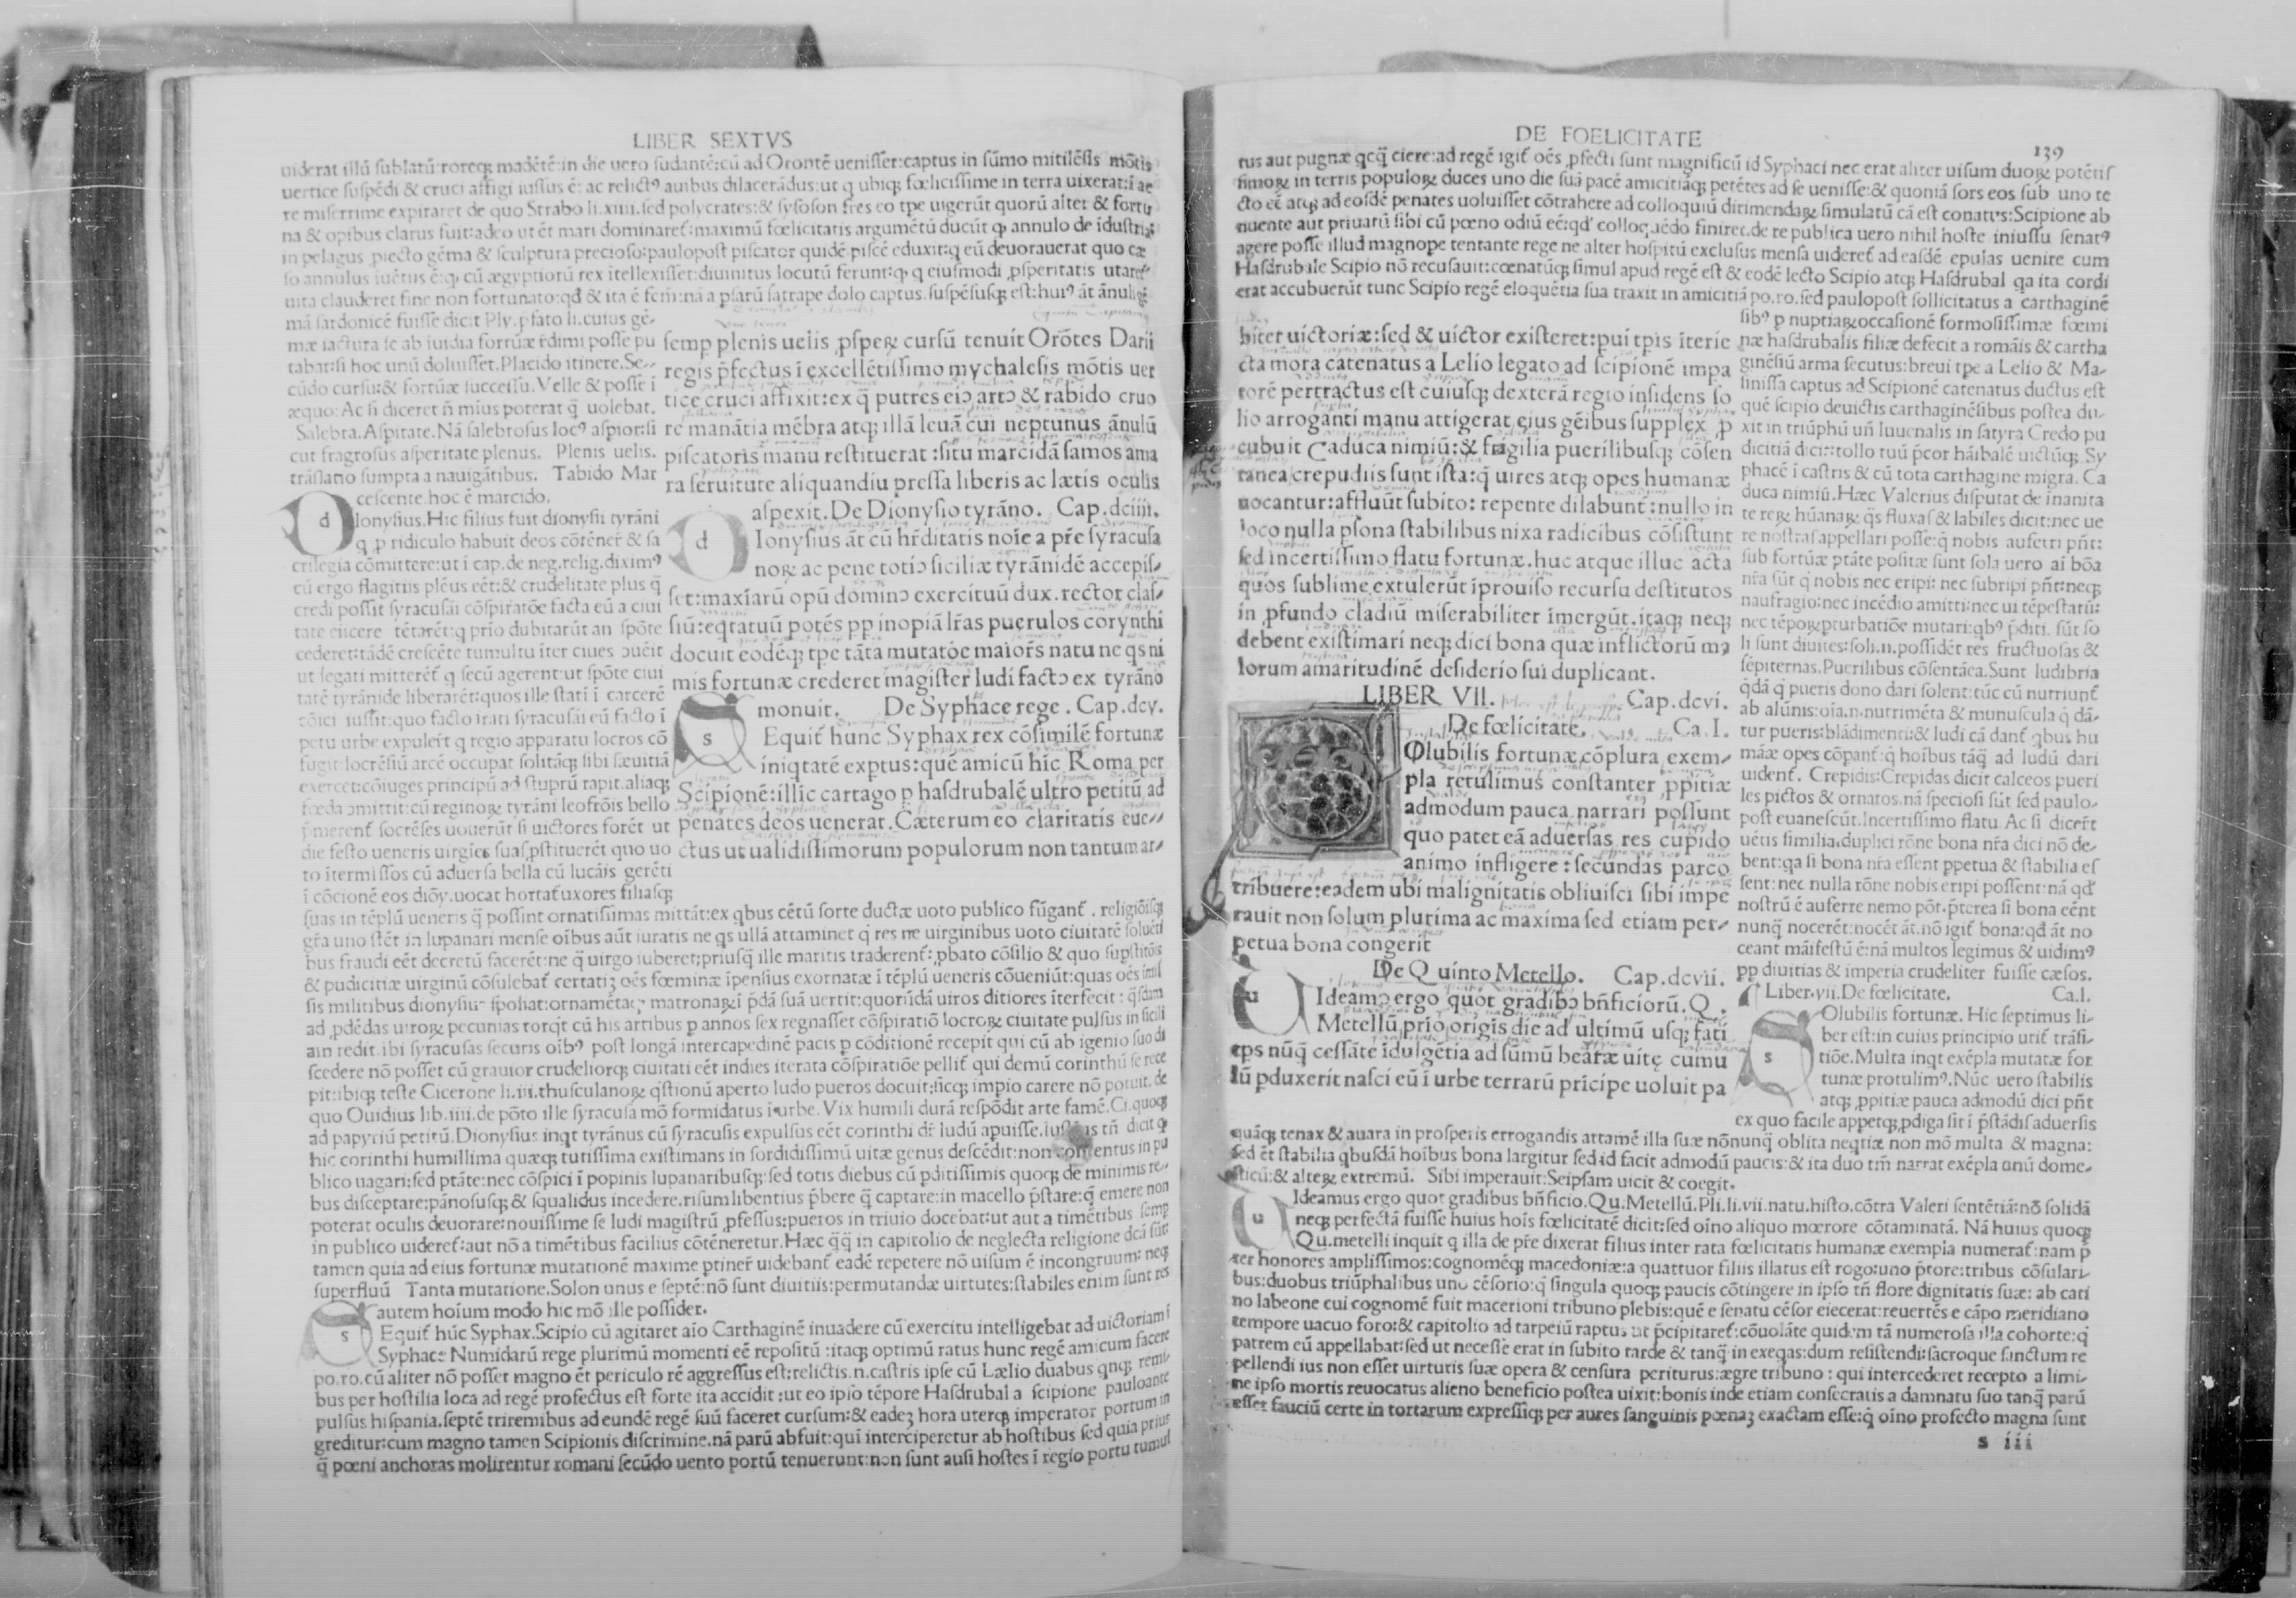 LIBER SEXTVS
uiderat illū sublatū:roreq; madētē:in die uero sudantē:cū ad Orontē uenisset:captus in sūmo mitilēsis mōtis
uertice suspēdi & cruci affigi iussus ē: ac relictꝰ auibus dilacerādus:ut q ubiq; fœlicissime in terra uixerat:ī ae
re miserrime expiraret de quo Strabo li.xiiii.sed polycrates:& sysoson fres eo tpe uigerūt quorū alter & fortu
na & opibus clarus fuit:adeo ut ēt mari dominaret:maximū fœlicitatis argumētū ducūt ꝙ annulo de īdustria
in pelagus ꝓiecto gēma & sculptura precioso:paulopost piscator quidē piscē eduxit:q eū deuorauerat quo cæ
so annulus iuētus ē:q, cū ægyptiorū rex itellexisset:diuinitus locutū ferunt:q, q eiusmodi ꝓsperitatis utaret
uita clauderet fine non fortunato:qd & ita ē fcm:nā a psarū satrape dolo captus.suspēsusq; est:huiꝰ āt ānulū
mā sardonicē fuisse dicit Ply.pfato li.cuius gē-
mæ iactura se ab iuidia fortūæ rdimi posse pu
tabat:si hoc unū doluisset.Placido itinere.Se-
cūdo cursu:& fortūæ successu.Velle & posse ī
æquo:Ac si diceret ñ mius poterat q̄ uolebat.
Salebra.Aspitate.Nā salebrosus locꝰ aspior:si
cut fragrosus asperitate plenus. Plenis uelis.
trāslatio sumpta a nauigātibus. Tabido Mar
cescente.hoc ē marcido.
semp plenis uelis ꝓspeꝝ cursū tenuit Orōtes Darii
regis p̄fectus ī excellētissimo mychalesis mōtis uer
tice cruci affixit:ex q̄ putres eiɔ artɔ & rabido cruo
re manātia mēbra atq; illā leuā cui neptunus ānulū
piscatoris manu restituerat :situ marcidā samos ama
ra seruitute aliquandiu pressa liberis ac lætis oculis
aspexit. De Dionysio tyrāno. Cap.dciiii.
d Ionysius āt cū hr̄ditatis noīe a pr̄e syracusa
noꝝ ac pene totiɔ siciliæ tyrānidē accepis-
set:maxīarū opū dominɔ exercituū dux.rector clas-
siū:eqtatuū potēs pp inopiā lr̄as puerulos corynthi
docuit eodēq; tpe tāta mutatōe maior̄s natu ne qs ni
mis fortunæ crederet magister ludi factɔ ex tyrāno
monuit. De Syphace rege . Cap.dcv.
s Equit hunc Syphax rex cōsimilē fortunæ
iniqtatē exptus:quē amicū hic Roma per
Scipionē:illic cartago p hasdrubalē ultro petitū ad
penates deos uenerat.Cæterum eo claritatis eue-
ctus ut ualidissimorum populorum non tantum ar-
d Ionysius.Hic filius fuit dionysii tyrāni
q ꝓ ridiculo habuit deos cōtēner & sa
crilegia cōmittere:ut ī cap.de neg.relig.diximꝰ
cū ergo flagitiis plēus eēt:& crudelitate plus q̄
credi possit syracusāi cōspiratōe facta eū a ciui
tate eiicere tētarēt:q prio dubitarūt an spōte
cederet:tādē crescēte tumultu īter ciues ɔuēit
ut legati mitteret q secū agerent:ut spōte ciui
tatē tyrānide liberarēt:quos ille stati ī carcerē
cōici iussit:quo facto īrati syracusāi eū facto ī
petu urbe expulert q regio apparatu locros cō
fugit:locrēsiū arcē occupat solitāq; sibi sæuitiā
exercet:cōiuges principū ad stuprū rapit.aliaq;
fœda ɔmittit:cū reginoꝝ tyrāni leofrōis bello
p̄merent socrēses uouerūt si uictores forēt ut
die festo ueneris uirgies suas ꝓstituerēt quo uo
to ītermissos cū aduersa bella cū lucāis gerēti
ī cōcionē eos diōy.uocat hortat uxores filiasq;
suas in tēplū ueneris q̄ possint ornatissimas mittāt:ex qbus cētū sorte ductæ uoto publico fūgant . religiōisq;
gr̄a uno stēt in lupanari mense oībus aūt iuratis ne qs ullā attaminet q res ne uirginibus uoto ciuitatē soluēti
bus fraudi eēt decretū facerēt:ne q̄ uirgo iuberet:priusq̄ ille maritis traderent:ꝓbato cōsilio & quo supstitōis
& pudicitiæ uirginū cōsulebat certatiʒ oēs fœminæ īpensius exornatæ ī tēplū ueneris cōueniūt:quas oēs
sis militibus dionysius spoliat:ornamētaq; matronaꝝ ī p̄dā suā uertit:quorūdā uiros ditiores īterfecit : q̄sdam
ad ꝓdēdas uiroꝝ pecunias torqt cū his artibus p annos sex regnasset cōspiratiō locroꝝ ciuitate pulsus in sicili
am redit.ibi syracusas securis oībꝰ post longā intercapedinē pacis p cōditionē recepit qui cū ab igenio suo di
scedere nō posset cū grauior crudeliorq; ciuitati eēt indies iterata cōspiratiōe pellit qui demū corinthū se rece
pit:ibiq; teste Cicerone li.iii.thusculanoꝝ q̄stionū aperto ludo pueros docuit:hcq; impio carere nō potuit. de
quo Ouidius lib.iiii.de pōto ille syracusā mō formidatus ī urbe.Vix humili durā respōdit arte famē.Ci.quoq;
ad papyriū petitū.Dionysius inqt tyrānus cū syracusis expulsus eēt corinthi dr̄ ludū apuisse.Iustinus tñ dicit q
hic corinthi humillima quæq; tutissima existimans in sordidissimū uitæ genus descēdit:non contentus in pu
blico uagari:sed ptāte:nec cōspici ī popinis lupanaribusq;:sed totis diebus cū pditissimis quoq; de minimis re-
bus disceptare:pānosusq; & squalidus incedere.risum libentius p̄bere q̄ captare:in macello p̄stare:q̄ emere non
poterat oculis deuorare:nouissime se ludi magistrū ꝓfessus:pueros in triuio docebat:ut aut a timētibus semp
in publico uideret:aut nō a timētibus facilius cōtēneretur.Hæc q̄q̄ in capitolio de neglecta religione dcā sūt
tamen quia ad eius fortunæ mutationē maxime ptiner uidebant eadē repetere nō uisum ē incongruum: neq;
superfluū Tanta mutatione.Solon unus e septē:nō sunt diuitiis:permutandæ uirtutes:stabiles enim sunt res
autem hoium modo hic mō ille possidet.
s Equit hūc Syphax.Scipio cū agitaret aīo Carthaginē inuadere cū exercitu intelligebat ad uictoriam ī
Syphace Numidarū rege plurimū momenti eē repositū :itaq; optimū ratus hunc regē amicum facere
po.ro.cū aliter nō posset magno ēt periculo rē aggressus est:relictis.n.castris ipse cū Lælio duabus qnq; remi-
bus per hostilia loca ad regē profectus est forte ita accidit :ut eo ipio tēpore Hasdrubal a scipione pauloante
pulsus hispania.septē triremibus ad eundē regē suū faceret cursum:& eadeʒ hora uterq; imperator portum in
greditur:cum magno tamen Scipionis discrimine.nā parū abfuit:qui interciperetur ab hostibus sed quia prius
q̄ pœni anchoras molirentur romani secūdo uento portū tenuerunt:non sunt ausi hostes ī regio portu tumul
DE FOELICITATE
139
tus aut pugnæ qcq̄ ciere:ad regē igit oēs ꝓfecti sunt magnificū id Syphaci nec erat aliter uisum duoꝝ potētis
simoꝝ in terris populoꝝ duces uno die suā pacē amicitiāq; petētes ad se uenisse:& quoniā sors eos sub uno te
cto eē atq; ad eosdē penates uoluisset cōtrahere ad colloquiū dirimendaꝝ simulatū cā est conatus:Scipione ab
nuente aut priuatū sibi cū pœno odiū eē:qd colloquēdo finiret.de re publica uero nihil hoste iniussu senatꝰ
agere posse illud magnope tentante rege ne alter hospitū exclusus mensa uideret ad easdē epulas uenire cum
Hasdrubale Scipio nō recusauit:cœnatūq; simul apud regē est & eodē lecto Scipio atq; Hasdrubal qa ita cordi
erat accubuerūt tunc Scipio regē eloquētia sua traxit in amicitiā po.ro.sed paulopost sollicitatus a carthaginē
sibꝰ p nuptiaꝝ occasionē formosissimæ fœmi
næ hasdrubalis filiæ defecit a romāis & cartha
ginēsiū arma secutus:breui tpe a Lelio & Ma-
sinissa captus ad Scipionē catenatus ductus est
quē scipio deuictis carthaginēsibus postea du-
xit in triūphū uñ Iuuenalis in satyra Credo pu
dicitiā dici::tollo tuū p̄cor hāibalē uictūq; Sy
phacē ī castris & cū tota carthagine migra. Ca
duca nimiū.Hæc Valerius disputat de inanita
te reꝝ hūanaꝝ q̄s fluxas & labiles dicit:nec ue
re nostras appellari posse:q̄ nobis auferri pñt:
sub fortūæ ptāte positæ sunt sola uero ai bōa
nr̄a sūt q̄ nobis nec eripi: nec subripi pñt:neq;
naufragio:nec incēdio amitti:nec ui tēpestatū:
nec tēpoꝝ pturbatiōe mutari:qbꝰ p̄diti. sūt so
li sunt diuites:soli.n.possidēt res fructuosas &
sēpiternas.Puerilibus cōsentāea.Sunt ludibria
q̄dā q̄ pueris dono dari solent:tūc cū nutriunt
ab alūnis:oia.n.nutrimēta & munuscula q̄ dā-
tur pueris:blādimenti:& ludi cā dant qbus hu
māæ opes cōpant:q̄ hoībus tāq̄ ad ludū dari
uident. Crepidis:Crepidas dicit calceos pueri
les pictos & ornatos.nā speciosi sūt sed paulo-
post euanescūt.Incertissimo flatu Ac si diceret
uētis similia.duplici rōne bona nr̄a dici nō de-
bent:qa si bona nr̄a essent ppetua & stabilia es
sent: nec nulla rōne nobis eripi possent:nā qd
nostrū ē auferre nemo pōt.p̄terea si bona eēnt
nunq̄ nocerēt:nocēt āt.nō igit bona:qd āt no
ceant māifestū ē:nā multos legimus & uidimꝰ
pp diuitias & imperia crudeliter fuisse cæsos.
Liber.vii.De fœlicitate. Ca.I.
biter uictoriæ:sed & uictor existeret:pui tpis īteric
cta mora catenatus a Lelio legato ad scipionē impa
torē pertractus est cuiusq; dexterā regio insidens so
lio arroganti manu attigerat eius gēibus supplex ꝓ
cubuit Caduca nimiū:& fragilia puerilibusq; cōsen
tanea crepudiis sunt ista:q̄ uires atq; opes humanæ
uocantur:affluūt subito: repente dilabunt:nullo in
loco nulla psona stabilibus nixa radicibus cōsistunt
sed incertissimo flatu fortunæ.huc atque illuc acta
quos sublime extulerūt īprouiso recursu destitutos
in ꝓfundo cladiū miserabiliter īmergūt.itaq; neq;
debent existimari neq; dici bona quæ īnflictorū ma
lorum amaritudinē desiderio sui duplicant.
LIBER VII. Cap.dcvi.
De fœlicitate. Ca.I.
Olubilis fortunæ cōplura exem-
pla retulimus constanter ꝓpitiæ
admodum pauca narrari possunt
quo patet eā aduersas res cupido
animo infligere : secundas parco
tribuere:eadem ubi malignitatis obliuisci sibi impe
rauit non solum plurima ac maxima sed etiam per-
petua bona congerit
De Quinto Metello. Cap.dcvii.
u Ideamɔ ergo quot gradibɔ bñficiorū.Q.
Metellū prio origis die ad ultimū usq; fati
tps nūq̄ cessāte īdulgētia ad sūmū beatæ uitę cumu
lū pduxerit nasci eū ī urbe terrarū prīcipe uoluit pa
s Olubilis fortunæ. Hic septimus li-
ber est:in cuius principio utit trāsi-
tiōe.Multa inqt exēpla mutatæ for
tunæ protulimꝰ.Nūc uero stabilis
atq; ꝓpitiæ pauca admodū dici pñt
ex quo facile appetq; pdiga sit ī p̄stādis aduersis
quāq; tenax & auara in prosperis errogandis attamē illa suæ nōnunq̄ oblita neqtiæ non mō multa & magna:
sed ēt stabilia qbusdā hoībus bona largitur sed id facit admodū paucis:& ita duo tm̄ narrat exēpla unū dome-
sticū:& alteꝝ extremū. Sibi imperauit:Seipsam uicit & coegit.
u Ideamus ergo quot gradibus bñficio.Qu.Metellū.Pli.li.vii.natu.histo.cōtra Valeri sentētiā:nō solidā
neq; perfectā fuisse huius hois fœlicitatē dicit:sed oīno aliquo mœrore cōtaminatā. Nā huius quoq;
Qu.metelli inquit q illa de pr̄e dixerat filius inter rata fœlicitatis humanæ exempla numerat:nam p̄
ter honores amplissimos:cognomēq; macedoniæ:a quattuor filiis illatus est rogo:uno p̄tore:tribus cōsulari-
bus:duobus triūphalibus uno cēsorio:q̄ singula quoq; paucis cōtingere in ipso tñ flore dignitatis suæ: ab cati
no labeone cui cognomē fuit macerioni tribuno plebis:quē e senatu cēsor eiecerat:reuertēs e cāpo meridiano
tempore uacuo foro:& capitolio ad tarpeiū raptus ut p̄cipitaret:cōuolāte quidem tā numerosa illa cohorte:q̄
patrem eū appellabat:sed ut necesse erat in subito tarde & tanq̄ in exeqas:dum resistendi:sacroque sanctum re
pellendi ius non esset uirturis suæ opera & censura periturus:ægre tribuno : qui intercederet recepto a limi-
ne ipso mortis reuocatus alieno beneficio postea uixit:bonis inde etiam consecratis a damnatu suo tanq̄ parū
esset fauciū certe in tortarum expressiq; per aures sanguinis pœnaʒ exactam esse:q̄ oīno profecto magna sunt
s iii